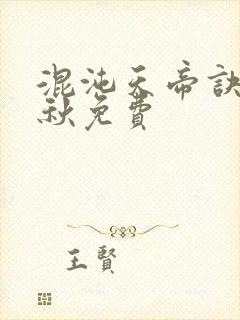 混沌天帝訣
秋免費
王賢